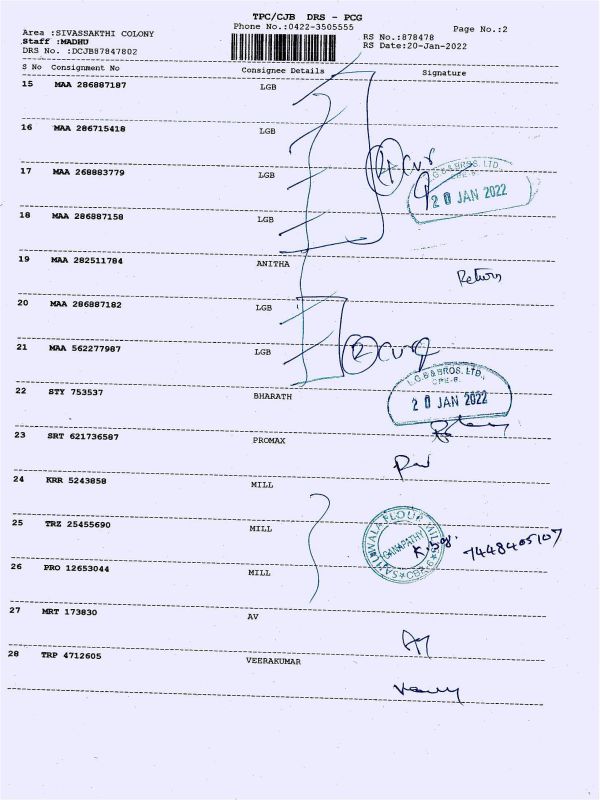 TPC/CJB DRS - PCG
Phone No.:0422-3505555
Page No.:2
Area :SIVASSAKTHI COLONY
Staff :MADHU
DRS No. :DCJB87847802
RS No.:878478
RS Date:20-Jan-2022
S No Consignment No Consignee Details Signature
15 MAA 286887187 LGB
16 MAA 286715418 LGB
17 MAA 268883779 LGB
4
L.G.B & BROS. LTD.
CBE-6.
20 JAN 2022
18 MAA 286887158 LGB
19 MAA 282511784 ANITHA
Return
20 MAA 286887182 LGB
21 MAA 562277987 LGB
2
L.G.B & BROS. LTD.,
CBE-6.
20 JAN 2022
22 STY 753537 BHARATH
23 SRT 621736587 PROMAX
24 KRR 5243858 MILL
25 TRZ 25455690 MILL
FLOUR MILL
GANAPATHY
CBE-6
7448405107
26 PRO 12653044 MILL
27 MRT 173830 AV
28 TRP 4712605 VEERAKUMAR